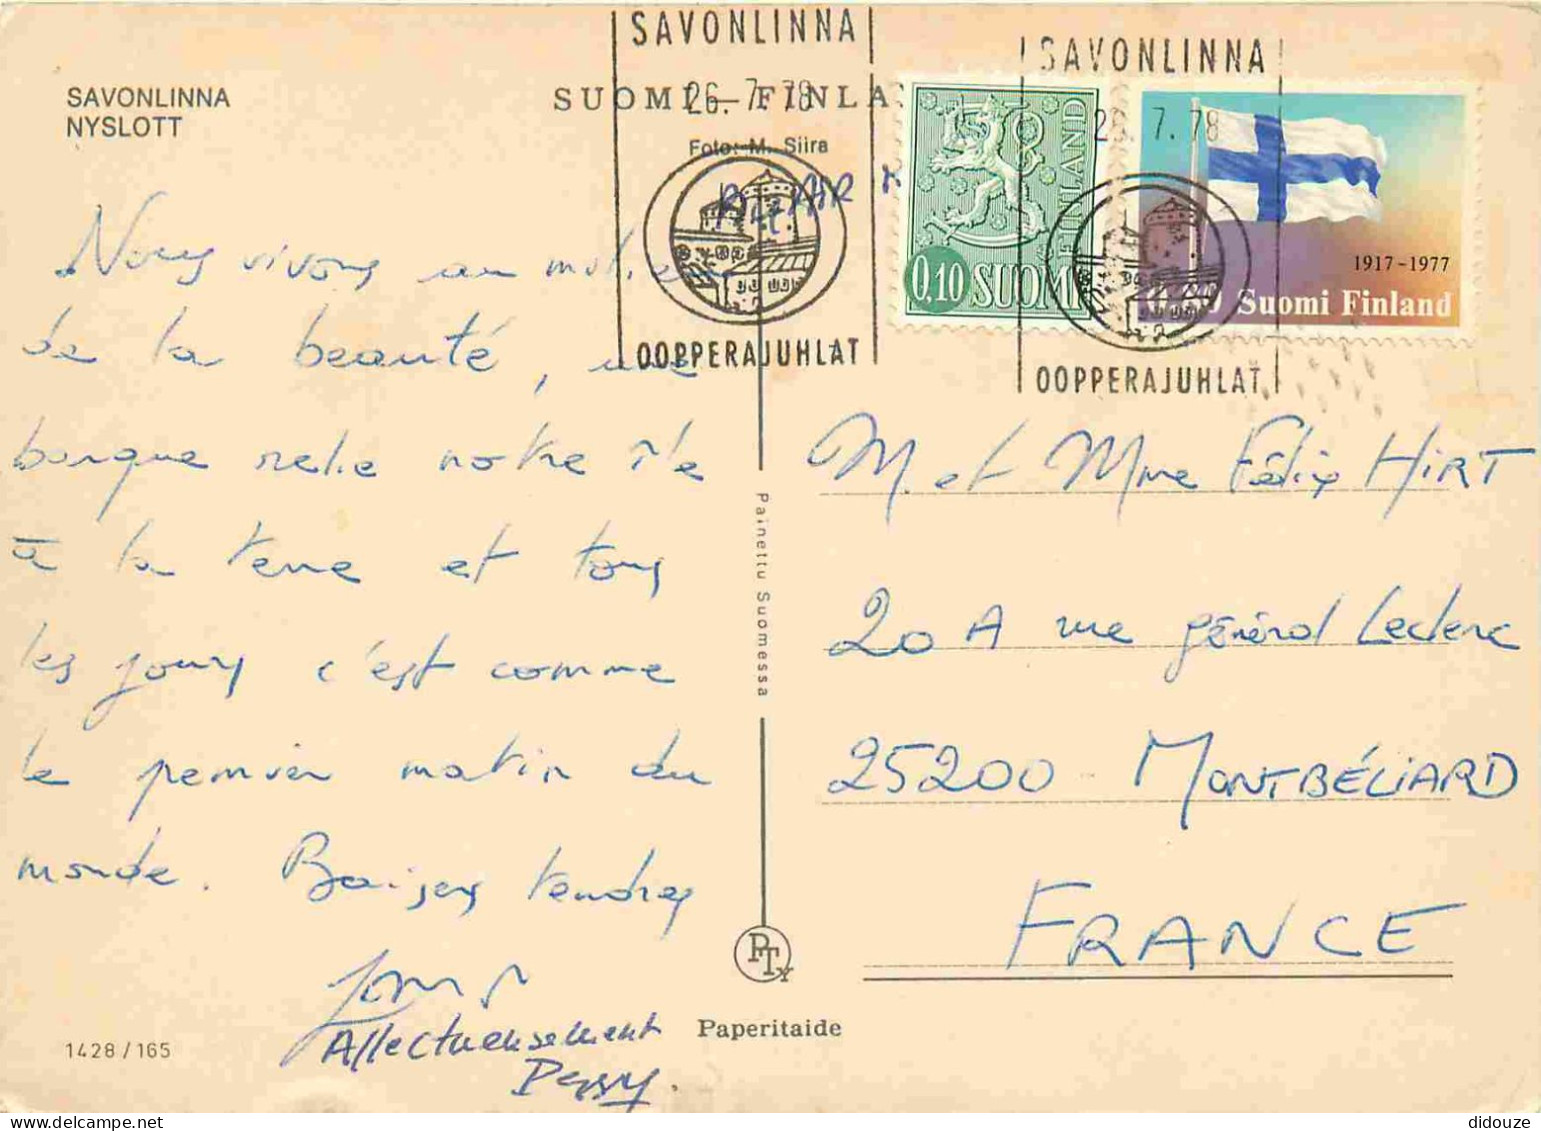 SAVONLINNA
NYSLOTT
SUOMI — FINLA
Foto: M. Siira
SAVONLINNA
26. 7. 78
OOPPERAJUHLAT
SAVONLINNA
26. 7. 78
OOPPERAJUHLAT
0,10 SUOMI
FINLAND
1917-1977
Suomi Finland
PAR AIR
Nous vivons au milieu
de la beauté, une
barque relie notre île
à la terre et tous
les jours c'est comme
le premier matin du
monde. Baisers tendres
Affectueusement
Peggy.
Painettu Suomessa
M. et Mme Félix HIRT
20 A rue général Leclerc
25200 MONTBÉLIARD
FRANCE
PTy
Paperitaide
1428/165
didouze